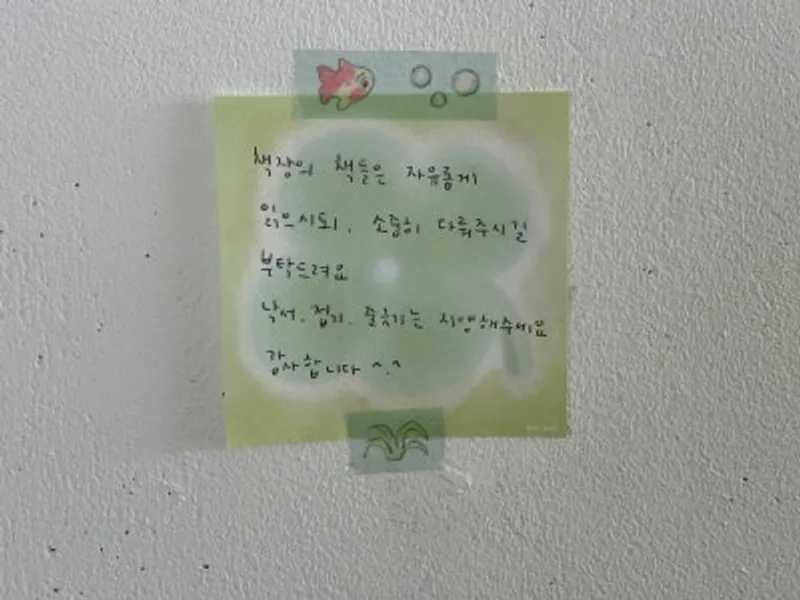 책장의 책들은 자유롭게
읽으시되, 소중히 다뤄주시길
부탁드려요
낙서, 접기, 줄긋기는 지양해주세요
감사합니다 ^.^